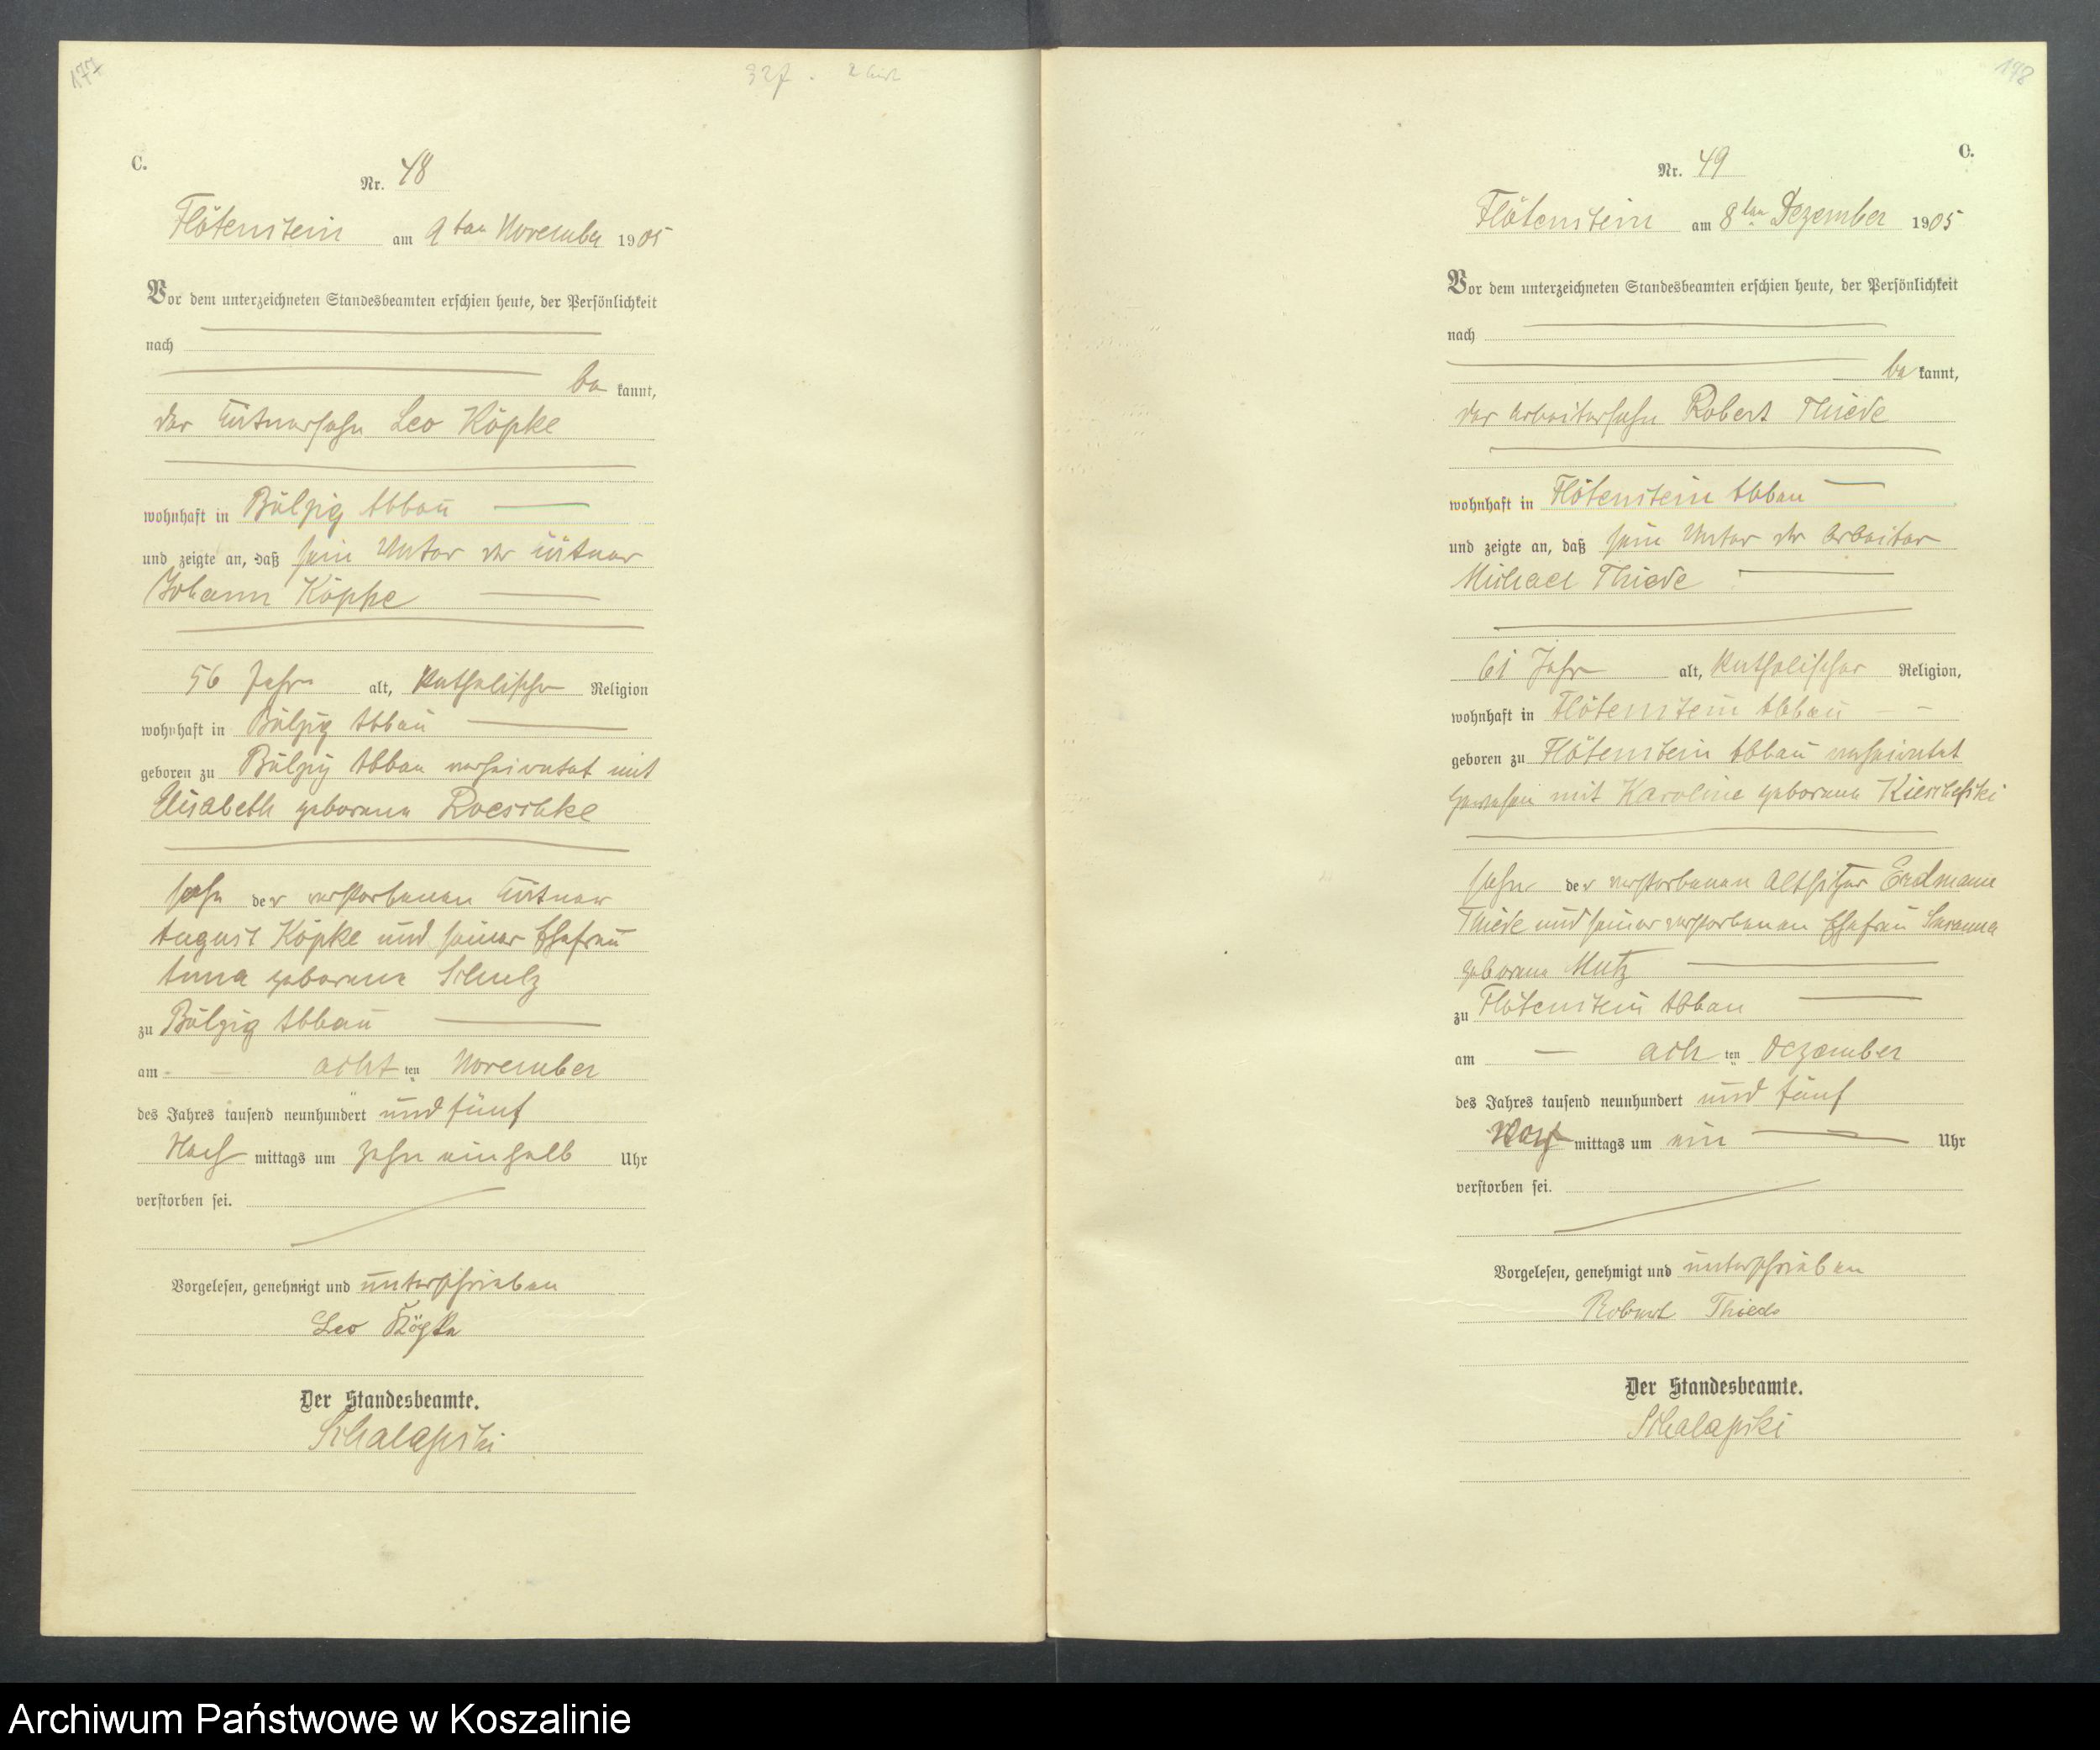 177
327.
C.
Nr. 48
Flötenstein am 9ten November 1905
Vor dem unterzeichneten Standesbeamten erschien heute, der Persönlichkeit
nach
be kannt,
der Eigentümersohn Leo Köpke
wohnhaft in Bölzig Abbau
und zeigte an, daß sein Vater der
Johann Köpke
56 Jahre alt, katholischer Religion
wohnhaft in Bölzig Abbau
geboren zu Bölzig Abbau verheiratet mit
Elisabeth geborene Roeschke
Sohn der verstorbenen
August Köpke und seiner Ehefrau
Anna geborene Schulz
zu Bölzig Abbau
am acht ten November
des Jahres tausend neunhundert und fünf
Nach mittags um zehn einhalb Uhr
verstorben sei.
Vorgelesen, genehmigt und unterschrieben
Leo Köpke
Der Standesbeamte.
Schalapski
178
C.
Nr. 49
Flötenstein am 8ten Dezember 1905
Vor dem unterzeichneten Standesbeamten erschien heute, der Persönlichkeit
nach
be kannt,
der Arbeitersohn Robert Thiede
wohnhaft in Flötenstein Abbau
und zeigte an, daß sein Vater der Arbeiter
Michael Thiede
61 Jahre alt, katholischer Religion,
wohnhaft in Flötenstein Abbau
geboren zu Flötenstein Abbau verheiratet
gewesen mit Karoline geborene
Sohn der verstorbenen Altsitzer Erdmann
Thiede und seiner verstorbenen Ehefrau Susanna
geborene Mutz
zu Flötenstein Abbau
am ach ten Dezember
des Jahres tausend neunhundert und fünf
mittags um ein Uhr
verstorben sei.
Vorgelesen, genehmigt und unterschrieben
Robert Thiede
Der Standesbeamte.
Schalapski
Archiwum Państwowe w Koszalinie